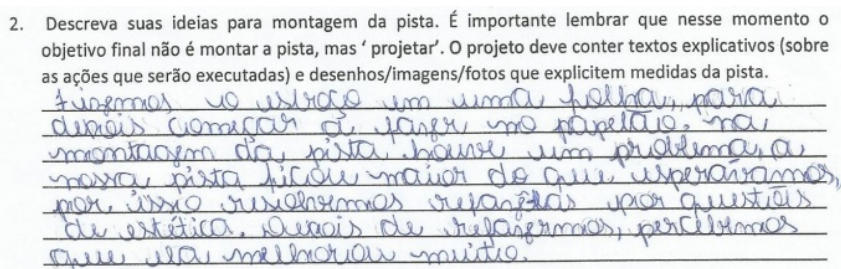 2. Descreva suas ideias para montagem da pista. É importante lembrar que nesse momento o
objetivo final não é montar a pista, mas ‘ projetar’. O projeto deve conter textos explicativos (sobre
as ações que serão executadas) e desenhos/imagens/fotos que explicitem medidas da pista.
Fizemos o esboço em uma folha, para
depois começar a fazer no papelão, na
montagem da pista houve um problema, a
nossa pista ficou maior do que esperávamos,
por isso resolvemos refazê-la por questões
de estética. Depois de refazermos, percebemos
que ela melhorou muito.